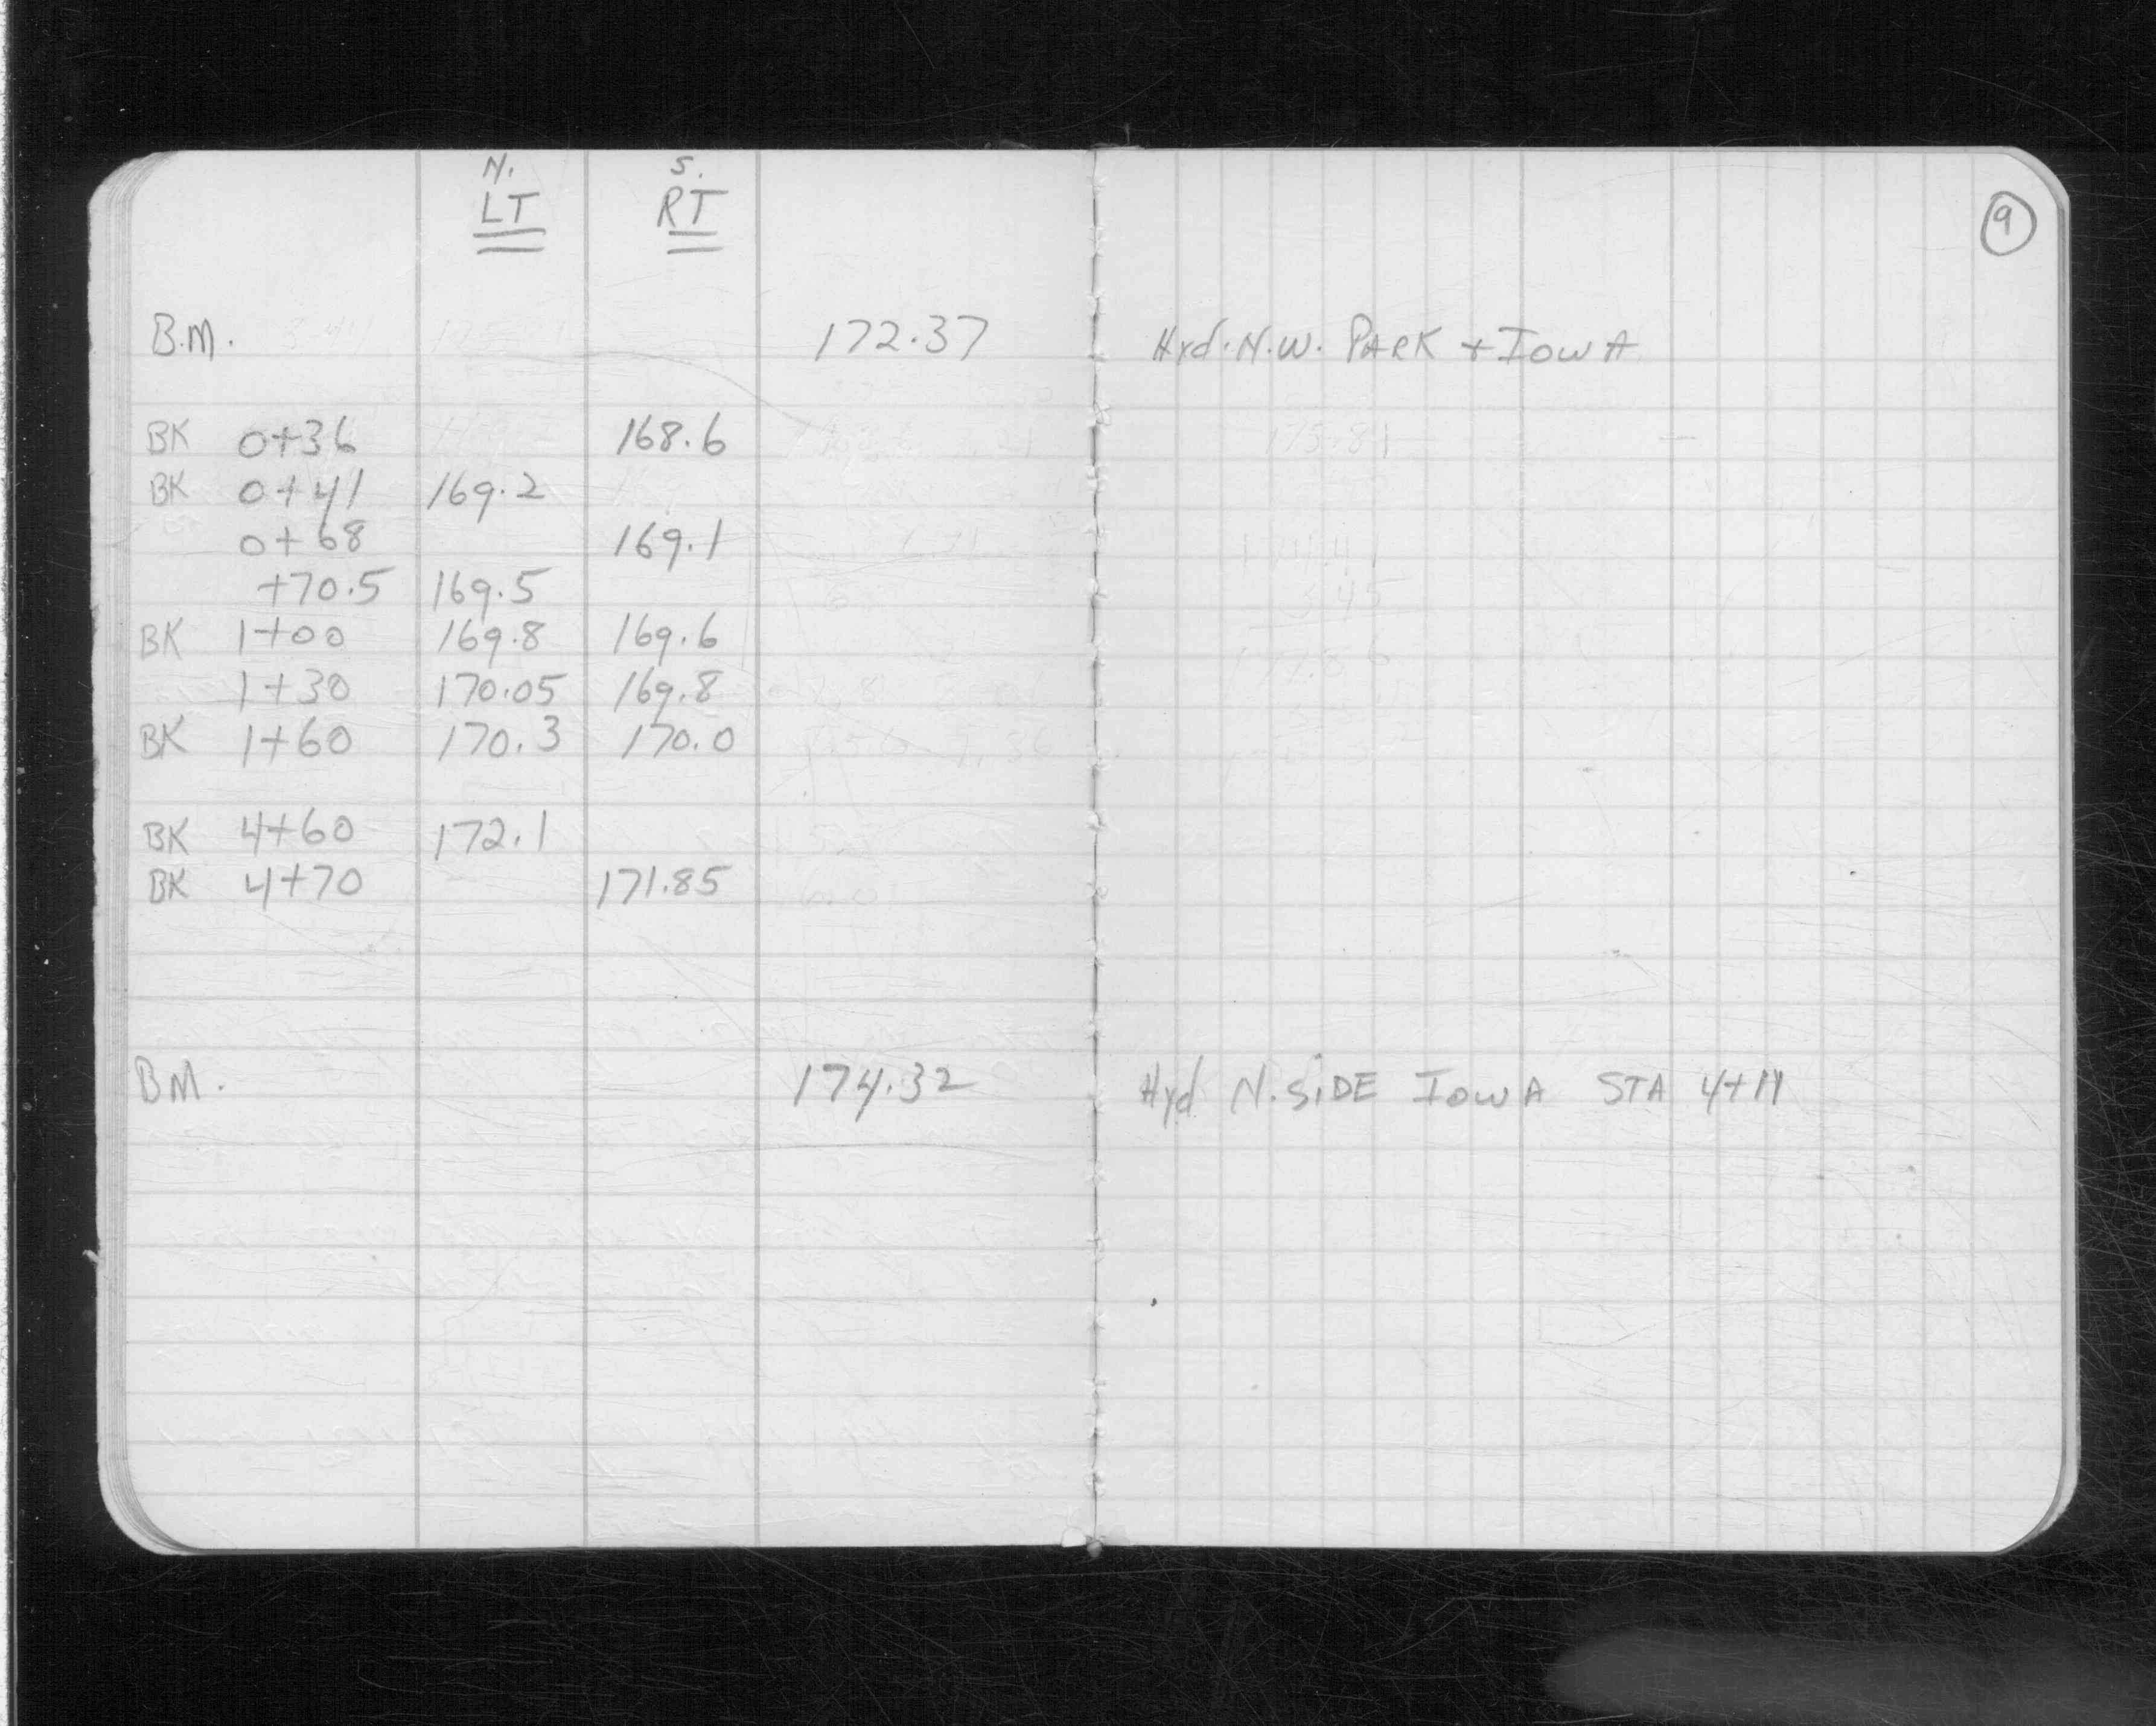 N. S.
LT RT
9
B.M. 172.37 Hyd. N.W. PARK + IOWA
BK 0+36 168.6
BK 0+41 169.2
0+68 169.1
+70.5 169.5
BK 1+00 169.8 169.6
1+30 170.05 169.8
BK 1+60 170.3 170.0
BK 4+60 172.1
BK 4+70 171.85
BM. 174.32 Hyd N. SIDE IOWA STA